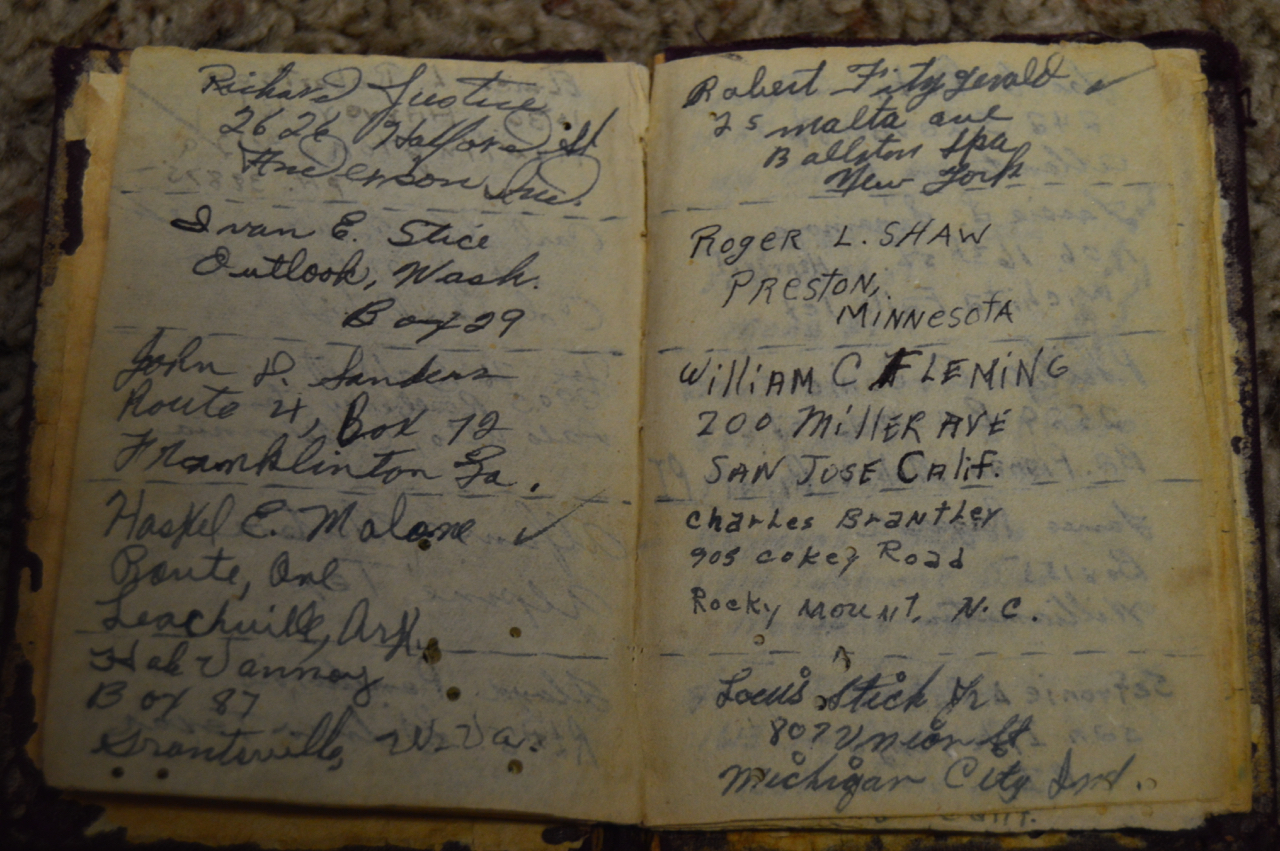 Richard Justice
2626 Halford St
Anderson Ind.
Ivan E. Stice
Outlook, Wash.
Box 29
John D. Sanders
Route 4, Box 72
Franklinton Ga.
Haskel E. Malone ✓
Route, One
Leachville, Ark.
Hal Vannoy
Box 87
Grantsville, W. Va.
Robert Fitzgerald ✓
25 malta ave
Ballston Spa
New York
Roger L. SHAW
PRESTON,
MINNESOTA
William C FLEMING
200 Miller AVE
SAN JOSE Calif.
Charles Brantley
905 cokey Road
Rocky MOUNT, N.C.
Stick Jr
807 Union St
Michigan City Ind.